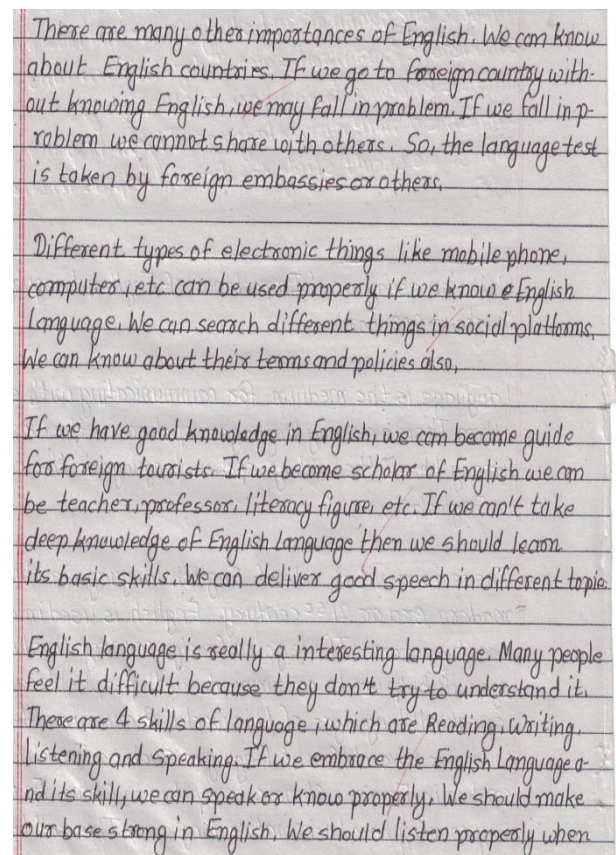 There are many other importances of English. We can know
about English countries. If we go to foreign country with-
out knowing English, we may fall in problem. If we fall in p-
roblem we cannot share with others. So, the language test
is taken by foreign embassies or others.
Different types of electronic things like mobile phone,
computer, etc can be used properly if we know e English
language. We can search different things in social platforms.
We can know about their terms and policies also.
If we have good knowledge in English, we can become guide
for foreign tourists. If we become scholar of English we can
be teacher, professor, literacy figure, etc. If we can't take
deep knowledge of English Language then we should learn
its basic skills. We can deliver good speech in different topic.
English language is really a interesting language. Many people
feel it difficult because they don't try to understand it.
There are 4 skills of language, which are Reading, Writing,
listening and speaking. If we embrace the English Language a-
nd its skill, we can speak or know properly. We should make
our base strong in English. We should listen properly when